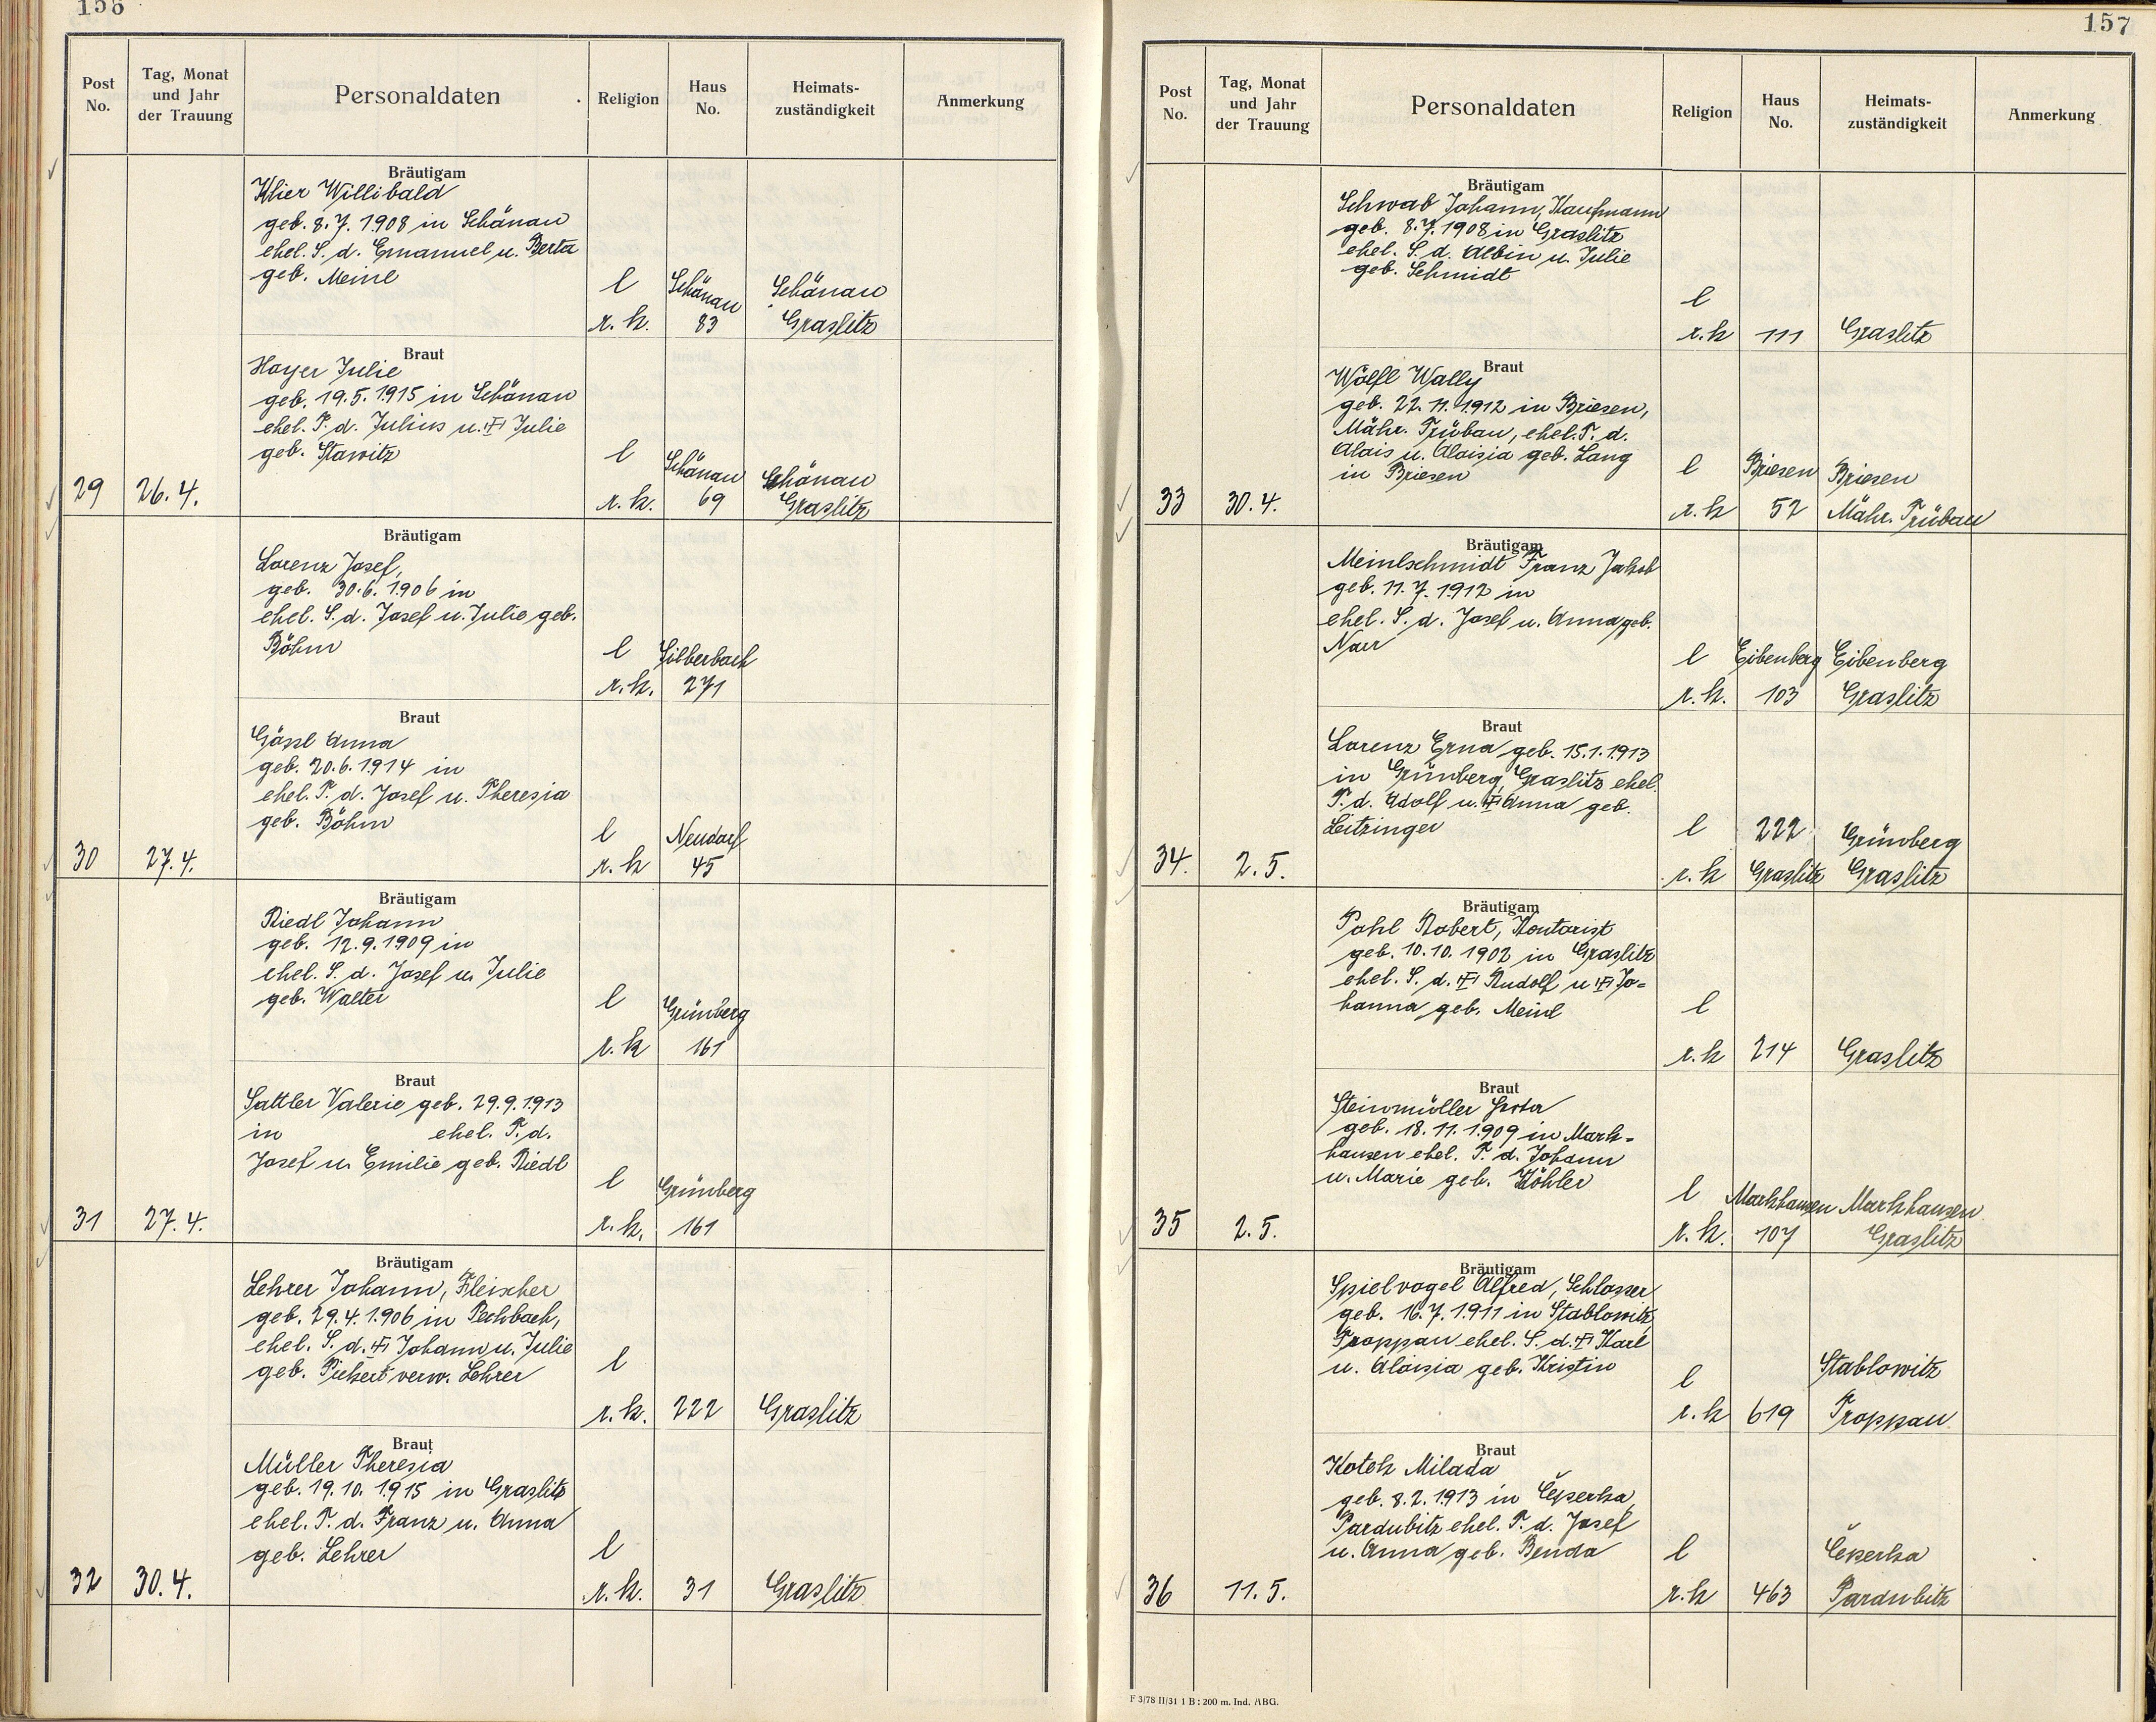 156
Post No.
Tag, Monat und Jahr der Trauung
Personaldaten
Religion
Haus No.
Heimats-zuständigkeit
Anmerkung
Bräutigam
Klier Willibald
geb. 8.7.1908 in Schönau
ehel. S. d. Emanuel u. Berta
geb. Meinl
l Schönau Schönau
r. k. 83 Graslitz
Braut
Hoyer Julie
geb. 19.5.1915 in Schönau
ehel. T. d. Julius u. Julie
geb. Stawitz
l Schönau Schönau
29 26.4. r. k. 69 Graslitz
Bräutigam
Lorenz Josef,
geb. 30.6.1906 in
ehel. S. d. Josef u. Julie geb.
Böhm
l Silberbach
r. k. 271
Braut
Gössl Anna
geb. 20.6.1914 in
ehel. T. d. Josef u. Theresia
geb. Böhm
l Neudorf
30 27.4. r. k 45
Bräutigam
Riedl Johann
geb. 12.9.1909 in
ehel. S. d. Josef u. Julie
geb. Walter
l Grünberg
r. k 161
Braut
Sattler Valerie geb. 29.9.1913
in ehel. T. d.
Josef u. Emilie geb. Riedl
l Grünberg
31 27.4. r. k. 161
Bräutigam
Lehrer Johann, Fleischer
geb. 29.4.1906 in Pechbach,
ehel. S. d. Johann u. Julie
geb. verw. Lehrer
l
r. k. 222 Graslitz
Braut
Müller Theresia
geb. 19.10.1915 in Graslitz
ehel. T. d. Franz u. Anna
geb. Lehrer
l
32 30.4. r. k. 31 Graslitz
157
Post No.
Tag, Monat und Jahr der Trauung
Personaldaten
Religion
Haus No.
Heimats-zuständigkeit
Anmerkung
Bräutigam
Schwab Johann, Kaufmann
geb. 8.7.1908 in Graslitz
ehel. S. d. Albin u. Julie
geb. Schmidt
l
r. k 111 Graslitz
Braut
Wölfl Wally
geb. 22.11.1912 in Briesen,
Mähr. Trübau, ehel. T. d.
Alois u. Aloisia geb. Lang
in Briesen
l Briesen Briesen
33 30.4. r. k 52 Mähr. Trübau
Bräutigam
Meinlschmidt Franz Jakob
geb. 11.7.1912 in
ehel. S. d. Josef u. Anna geb.
l Eibenberg Eibenberg
r. k. 103 Graslitz
Braut
Lorenz Erna geb. 15.1.1913
in Grünberg, Graslitz ehel.
T. d. Adolf u. Anna geb.
Leitzinger
l 222 Grünberg
34. 2.5. r. k Graslitz Graslitz
Bräutigam
Pohl Robert, Kontorist
geb. 10.10.1902 in Graslitz
ehel. S. d. Rudolf u Jo=
hanna geb. Meinl
l
r. k 214 Graslitz
Braut
Steinmüller Herta
geb. 18.11.1909 in Mark=
hausen ehel. T. d. Johann
u. Marie geb. Köhler
l Markhausen Markhausen
35 2.5. r. k. 107 Graslitz
Bräutigam
Spielvogel Alfred, Schlosser
geb. 16.7.1911 in Stablowitz,
Troppau ehel. S. d. Karl
u. Aloisia geb. Kristin
l Stablowitz
r. k 619 Troppau
Braut
Kotek Milada
geb. 8.2.1913 in Čeperka
Pardubitz ehel. T. d. Josef
u. Anna geb. Benda
l Čeperka
36 11.5. r. k 463 Pardubitz
F 3/78 II/31 1 B : 200 m. Ind. ABG.